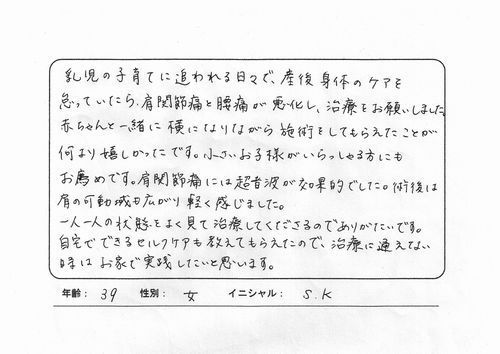 乳児の子育てに追われる日々で、産後身体のケアを
怠っていたら、肩関節痛と腰痛が悪化し、治療をお願いしました。
赤ちゃんと一緒に横になりながら施術をしてもらえたことが
何より嬉しかったです。小さいお子様がいらっしゃる方にも
お薦めです。肩関節痛には超音波が効果的でした。術後は
肩の可動域も広がり軽く感じました。
一人一人の状態をよく見て治療してくださるのでありがたいです。
自宅でできるセルフケアも教えてもらえたので、治療に通えない
時はお家で実践したいと思います。
年齢: 39 性別: 女 イニシャル: S.K